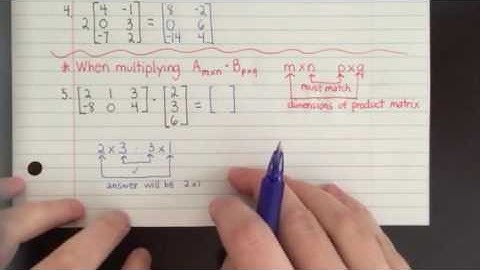 4. 2 [4 -1; 0 3; -7 2] = [8 -2; 0 6; -14 4]
* When multiplying Amxn · Bpxq
m x n p x q
must match
dimensions of product matrix
5. [2 1 3; -8 0 4] · [2; 3; 6] = [ ]
2 x 3 · 3 x 1
✓
answer will be 2x1